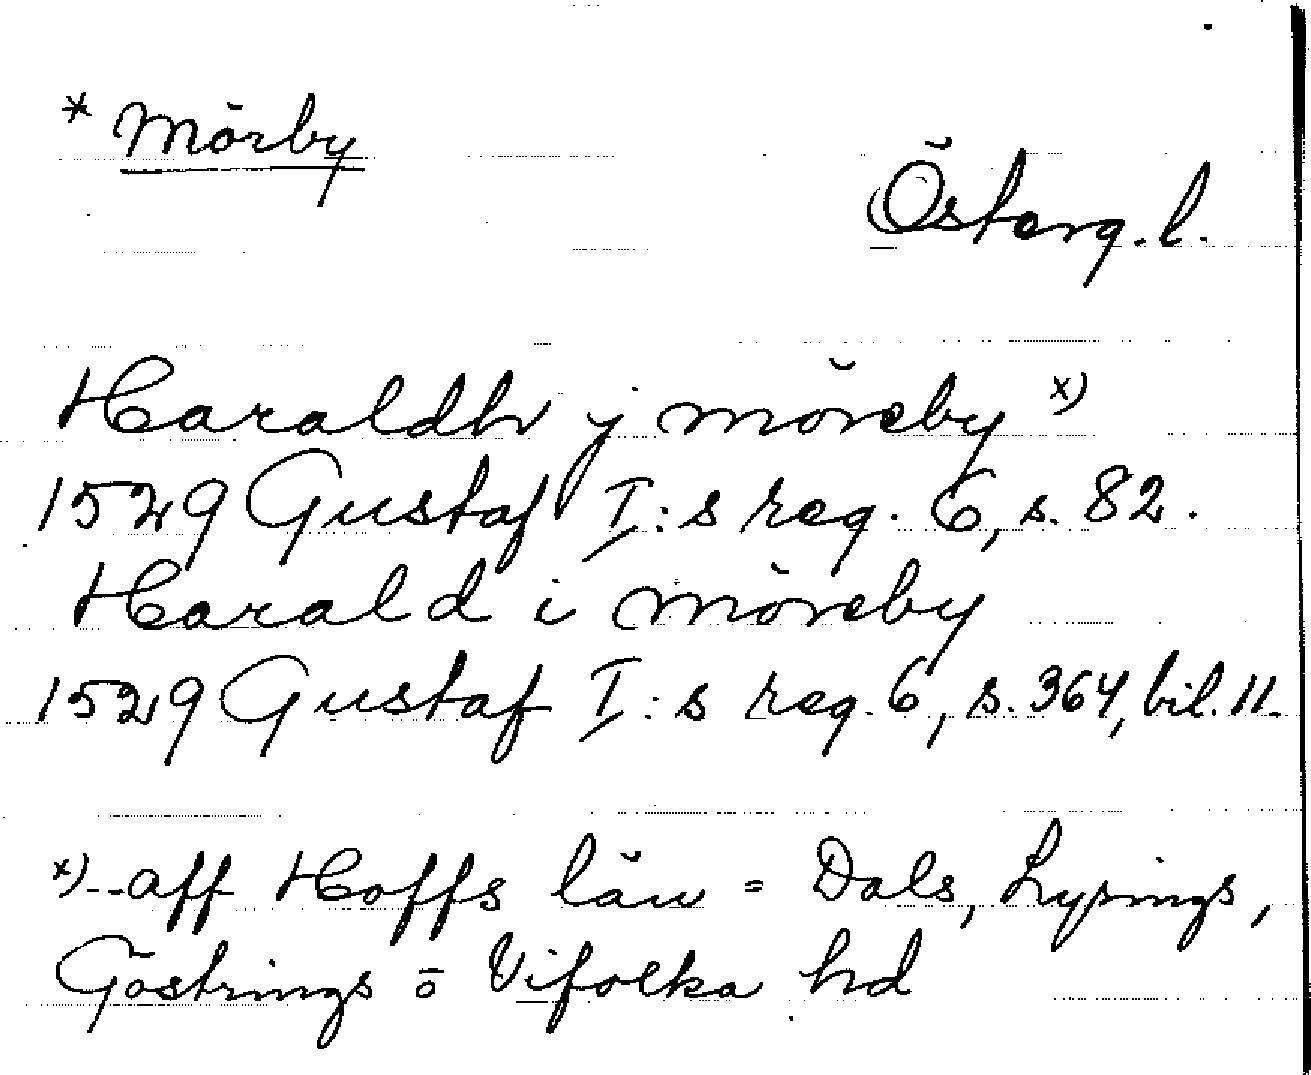 * Mörby
Österg. l.
Haraldh j möreby x)
1529 Gustaf I:s reg. 6, s. 82.
Harald i möreby
1529 Gustaf I:s reg. 6, s. 364, bil. 11.
x) - - aff Hoffs län = Dals, Lysings,
Göstrings o Vifolka hd